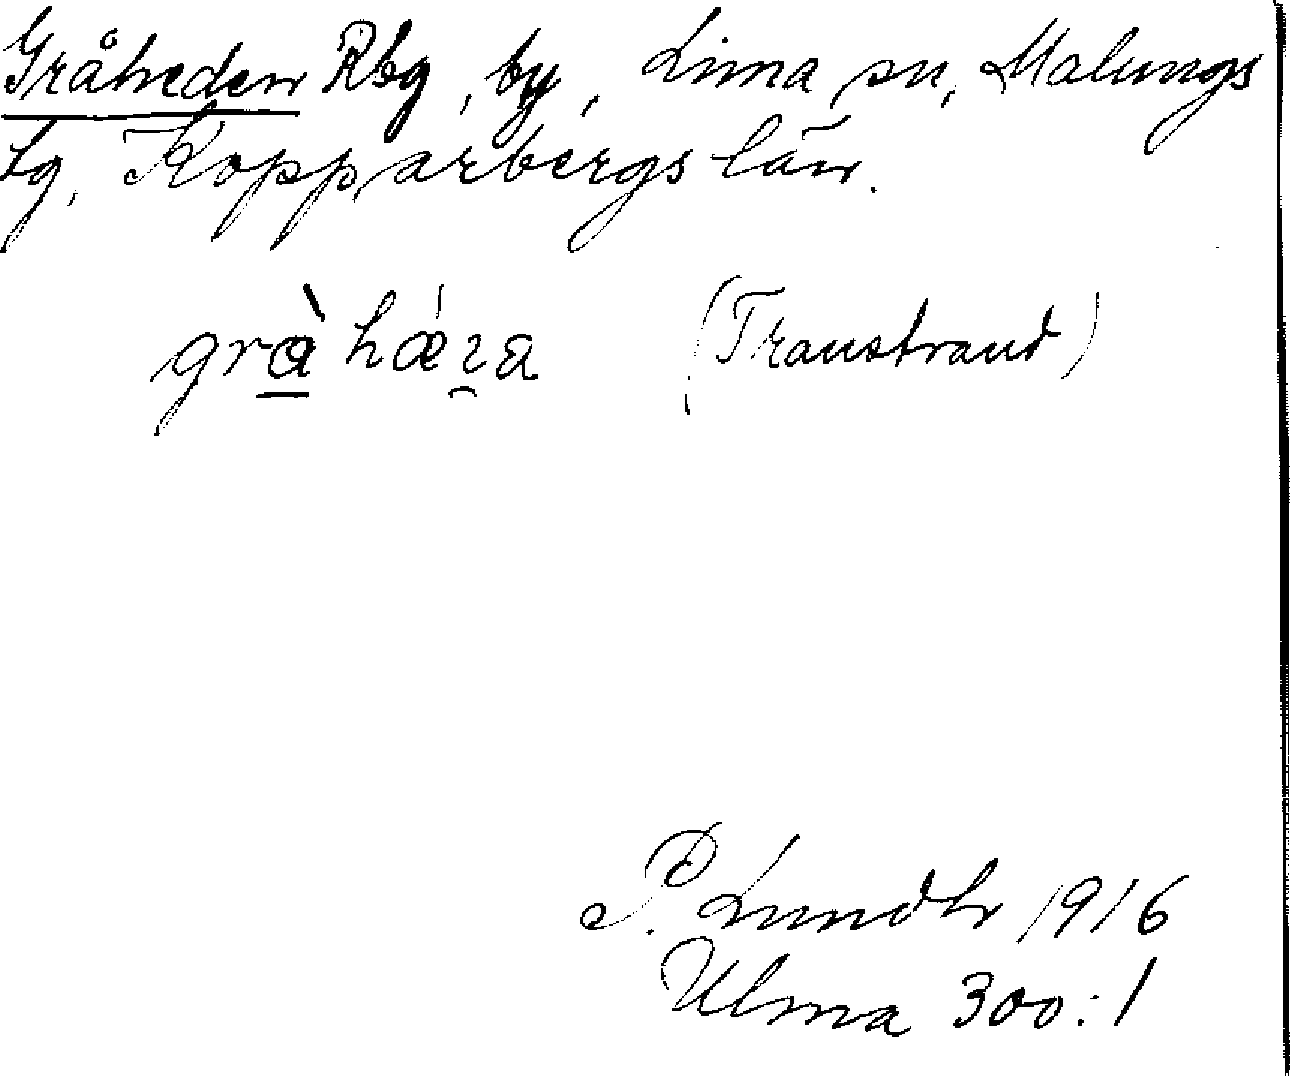 Gråheden Rbg, by, Lima sn, Malungs
tg, Kopparbergs län.
(Transtrand)
P. Lundh 1916
Ulma 300:1